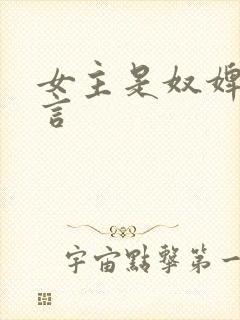 女主是奴婢
言
宇宙點擊第一